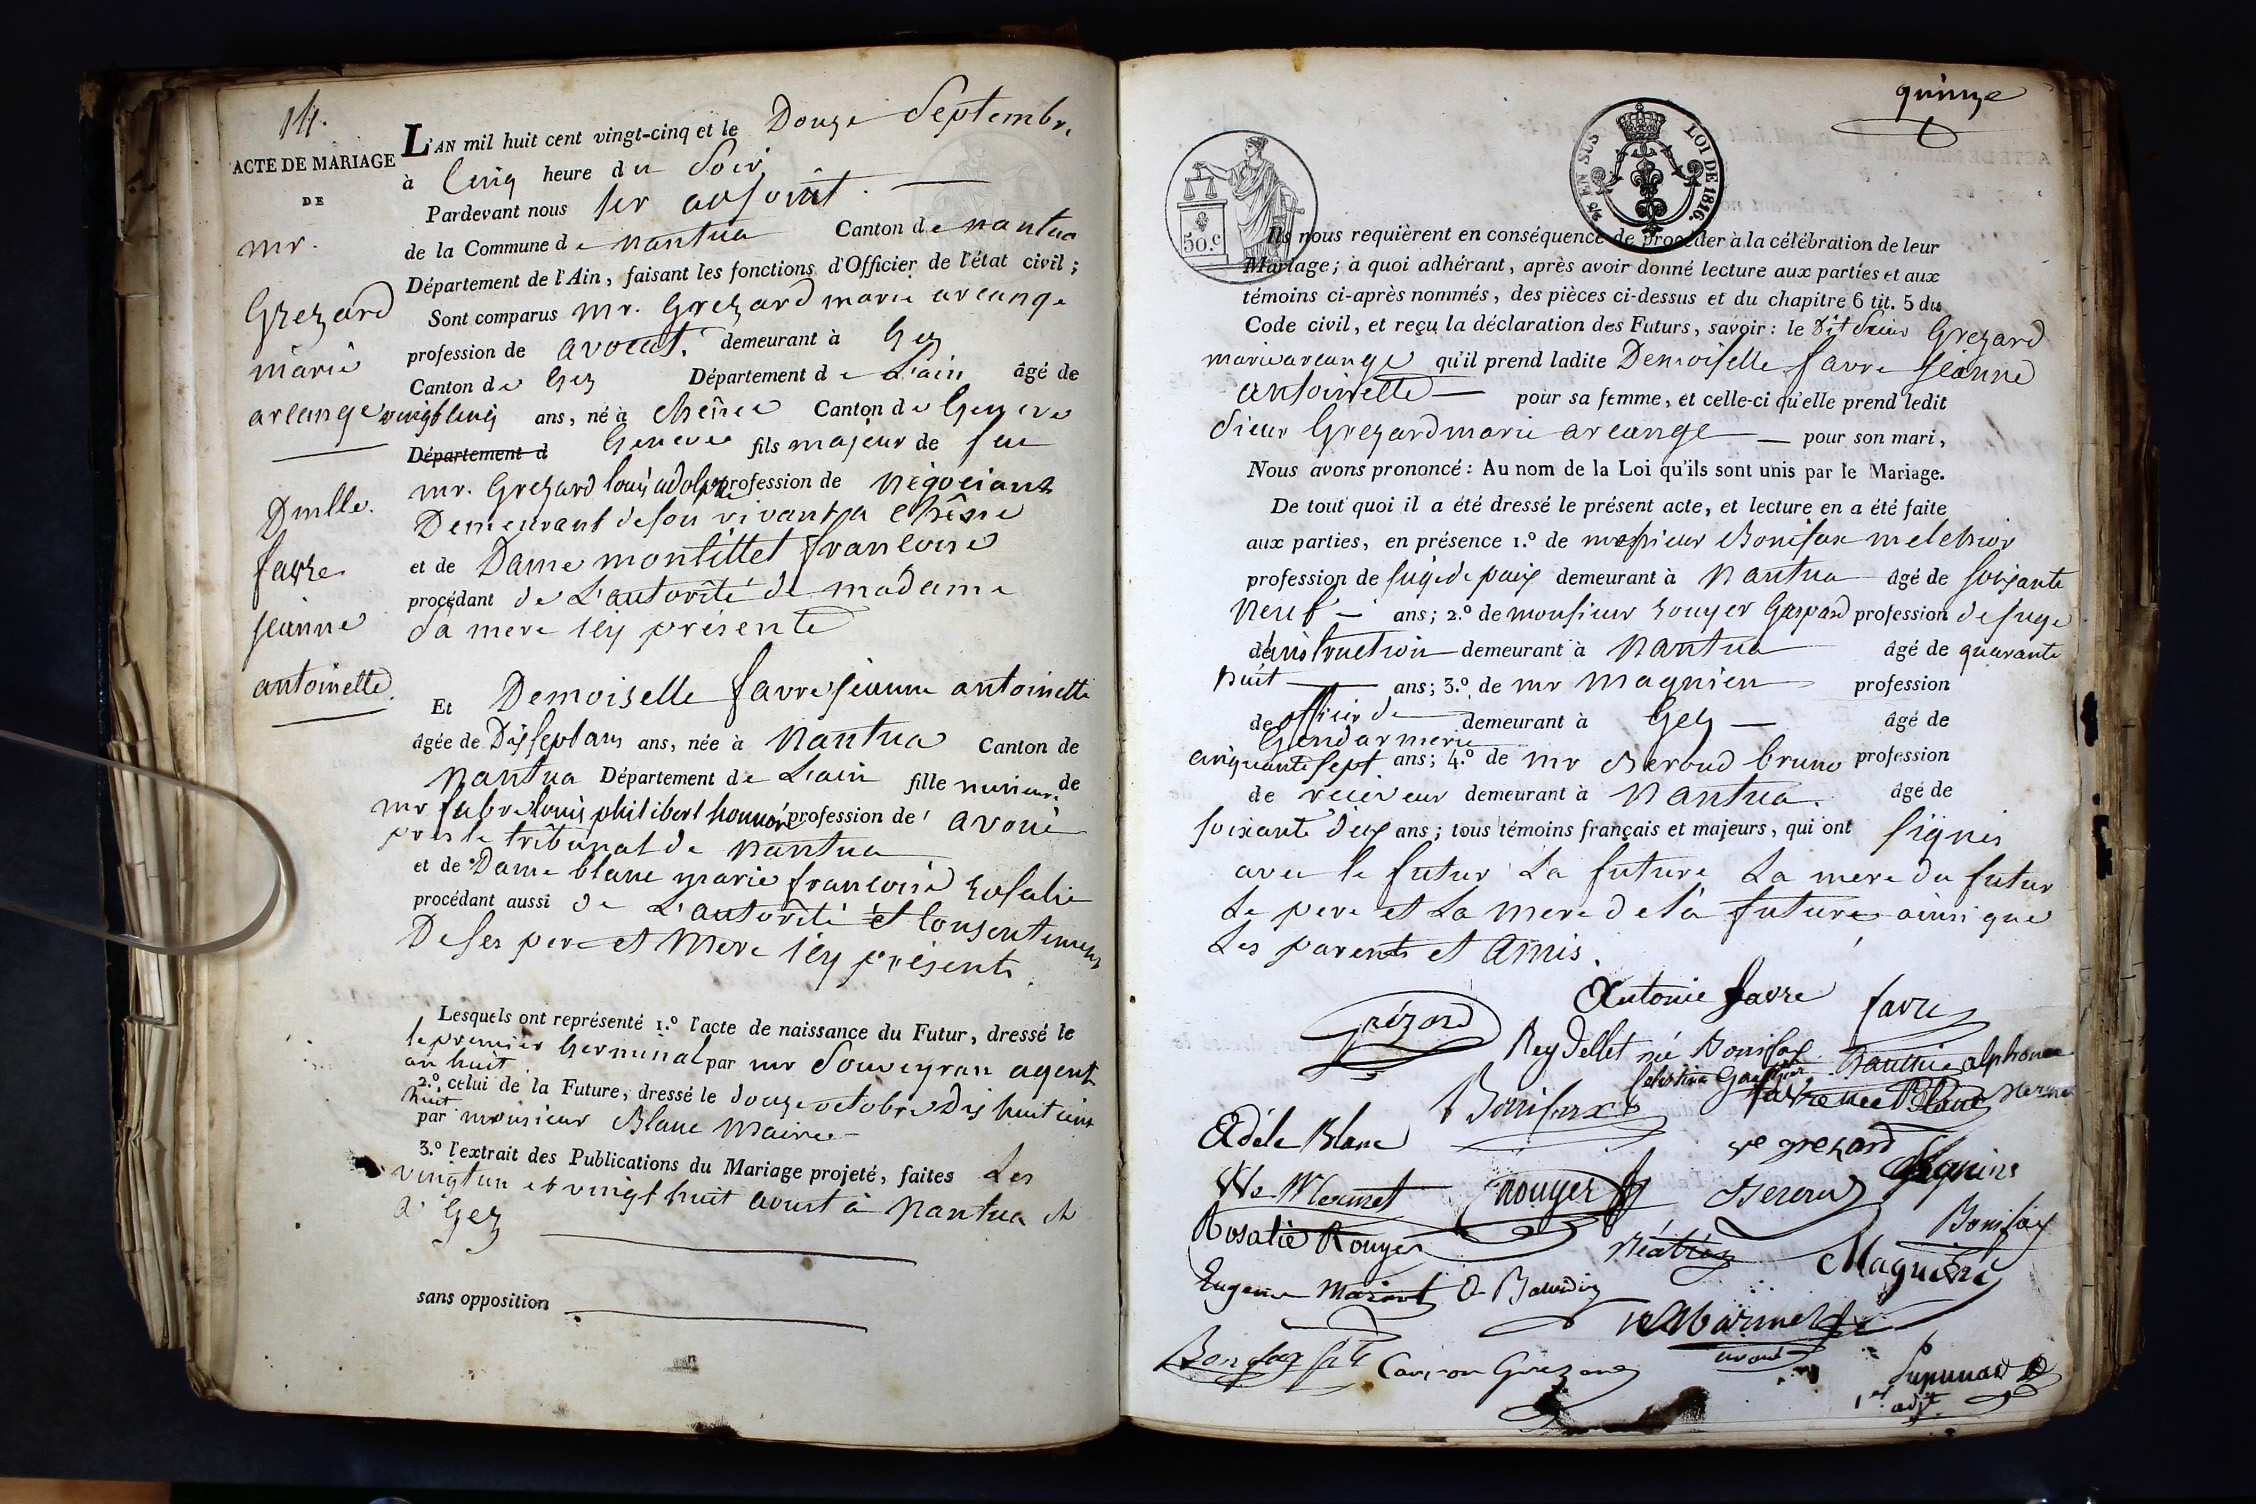 14.
ACTE DE MARIAGE
DE
mr.
Grezard
marie
arcange
Dmlle.
favre
jeanne
antoinette.
L'AN mil huit cent vingt-cinq et le Douze Septembre
à Cinq heure du Soir
Pardevant nous 1er adjoint
de la Commune de nantua Canton de nantua
Département de l'Ain, faisant les fonctions d'Officier de l'état civil;
Sont comparus mr. Grezard marie arcange
profession de avocat. demeurant à Gex
Canton de Gex Département de L'ain âgé de
vingt cinq ans, né à chêne Canton de Geneve
Département d Geneve fils majeur de feu
mr. Grezard louis adolphe profession de négociant
Demeurant de son vivant a chêne
et de Dame montillet francoise
procédant de L'autorité de madame
Sa mere icy présente
Et Demoiselle favre jeanne antoinette
âgée de Dixsept ans ans, née à Nantua Canton de
Nantua Département de L'ain fille mineure de
mr fabre louis philibert honnoré profession de avoué
pres le tribunal de nantua
et de Dame blanc marie francoise rosalie
procédant aussi de L'autorité et Consentement
De ses pere et Mere icy présents.
Lesquels ont représenté 1.º l'acte de naissance du Futur, dressé le
le premier Germinal par mr Souveyran agent
an huit
2.º celui de la Future, dressé le douze octobre Dix huit cent
huit
par monsieur Blanc Maire
3.º l'extrait des Publications du Mariage projeté, faites Les
vingt un et vingt huit aoust à Nantua et
a Gex
sans opposition
quinze
EN SUS
LOI DE 1816.
50.c
Ils nous requièrent en conséquence de procéder à la célébration de leur
Mariage; à quoi adhérant, après avoir donné lecture aux parties et aux
témoins ci-après nommés, des pièces ci-dessus et du chapitre 6 tit. 5 du
Code civil, et reçu la déclaration des Futurs, savoir: le dit Sieur Grezard
marie arcange qu'il prend ladite Demoiselle favre jeanne
antoinette pour sa femme, et celle-ci qu'elle prend ledit
Sieur Grezard marie arcange pour son mari,
Nous avons prononcé: Au nom de la Loi qu'ils sont unis par le Mariage.
De tout quoi il a été dressé le présent acte, et lecture en a été faite
aux parties, en présence 1.º de messieur Bonifax melchior
profession de juge de paix demeurant à Nantua âgé de soixante
neuf ans; 2.º de monsieur rouyer Gaspard profession de juge
d'instruction demeurant à Nantua âgé de quarante
huit ans; 3.º de mr Magnien profession
de officier de demeurant à Gex âgé de
Gendarmerie
cinquante sept ans; 4.º de mr Beroud bruno profession
de receveur demeurant à Nantua. âgé de
soixante deux ans; tous témoins français et majeurs, qui ont signés
avec le futur La future La mere du futur
Le pere et La mere de la future ainsi que
Les parents et amis.
Antonie favre favre
Grézard
Reydellet né Bonifax
Celestine Gauthier alphonse
Bonifax favre née Blanc
Adèle Blanc
ve grezard
rouyer Beroud
Rosalie Rouyer Bonifax
Magnien
Eugenie
Bonifax fils
Caviron Grezard
avoué
1er
adjt